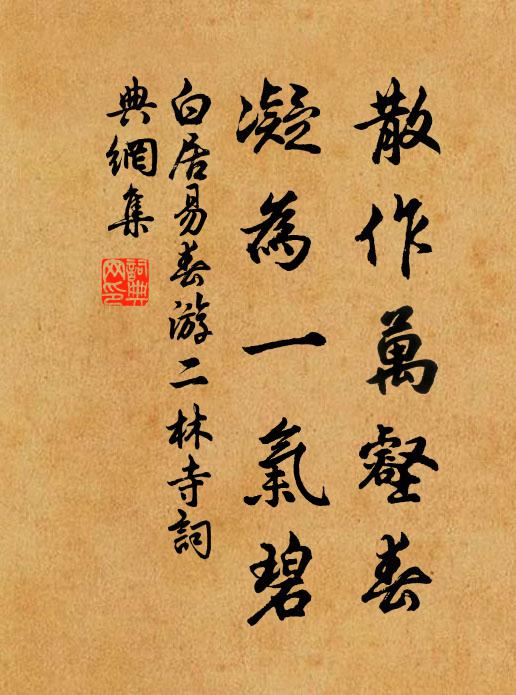 散作萬壑春
凝為一氣碧
白居易春游二林寺詞
典網集
詞典網印